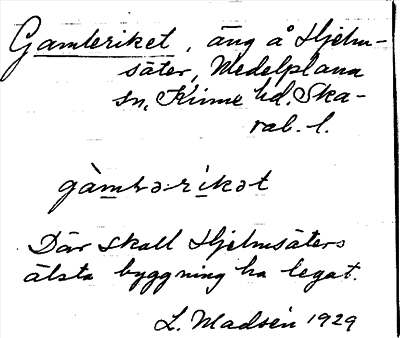 Gamleriket, äng å Hjelm-
säter, Medelplana
sn, Kinne hd. Ska-
rab. l.
gàmlə-rìkət
Där skall Hjelmsäters
älsta byggning ha legat.
L. Madsén 1929